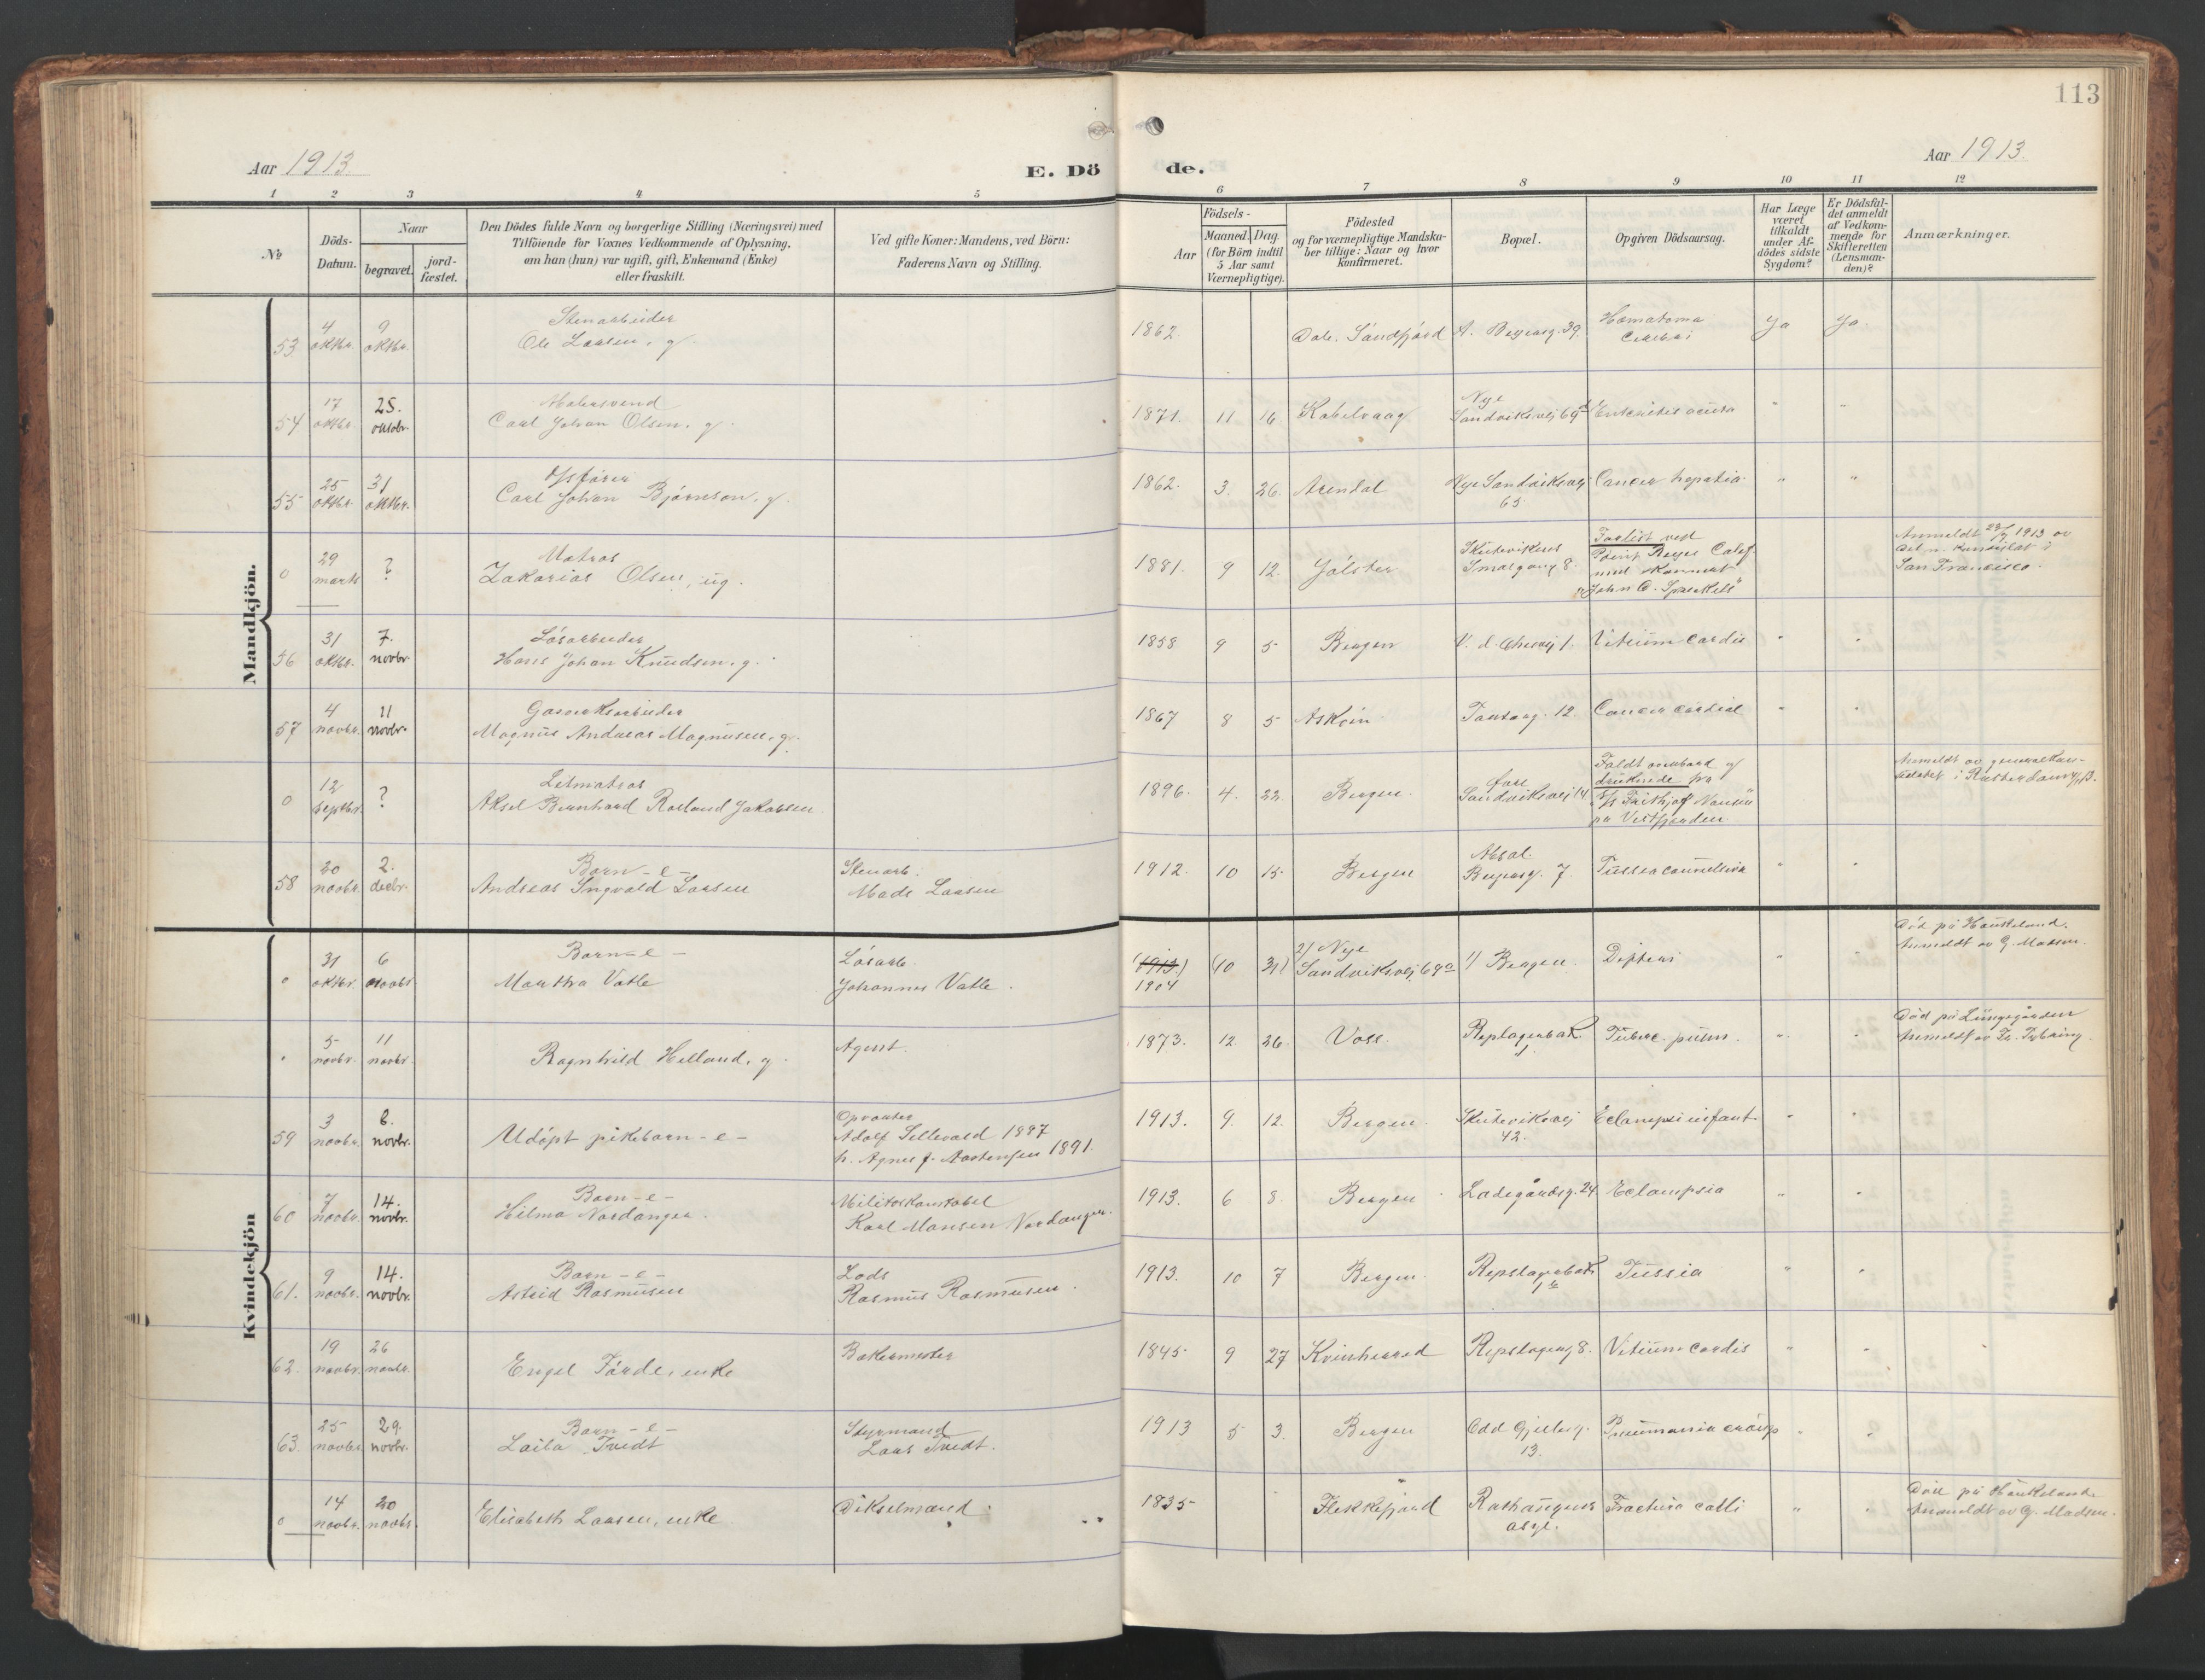 113
Aar 1913
E. Dö
de.
Aar 1913.
1 2 3 4 5
6 7 8 9 10 11 12
No
Döds-
Datum.
Naar
begravet.
jord-
fæstet.
Den Dödes fulde Navn og borgerlige Stilling (Næringsvei) med
Tilföiende for Voxnes Vedkommende af Oplysning,
om han (hun) var ugift, gift, Enkemand (Enke)
eller fraskilt.
Ved gifte Koner: Mandens, ved Börn:
Faderens Navn og Stilling.
Födsels-
Aar
Maaned. Dag.
(for Börn indtil
5 Aar samt
Værnepligtige).
Födested
og for værnepligtige Mandska-
ber tillige: Naar og hvor
konfirmeret.
Bopæl.
Opgiven Dödsaarsag.
Har Læge
været
tilkaldt
under Af-
dödes sidste
Sygdom?
Er Dödsfal-
det anmeldt
af Vedkom-
mende for
Skifteretten
(Lensman-
den)?
Anmærkninger.
Mandkjön.
53
4
oktbr.
9
oktbr.
Stenarbeider
Ole Larsen, g.
1862.
Dale. Söndfjord
A. Beyersg. 39.
Hæmatoma
Cerebri
Ja
Ja.
54
17
oktbr.
25.
oktobr.
Malersvend
Carl Johan Olsen. g.
1871.
11
16.
Kabelvaag
Nye
Sandviksvej 69
Enteritis acuta
"
"
55
25
oktbr.
31
oktbr.
Carl Johan Björnson. g.
1862.
3.
26.
Arendal
Nye Sandviksvej
65
Cancer hepatis.
"
"
0
29
marts
?
Matros
Zakarias Olsen, ug.
1881.
9
12.
Jölster
Skutevikens
Smalgang 8.
Forlist ved
Point Reyes Calif.
med skonnert
"John D. Spreckels"
Anmeldt 28/7 1913 av
San Francisco.
56
31
oktbr.
7.
novbr.
Lösarbeider
Hans Johan Knudsen. g.
1858
9
5
Bergen
Vitium cordis
"
"
57
4
novbr.
11
novbr.
Gasverksarbeider
Magnus Andreas Magnusen, g.
1867
8
5
Asköen
12.
Cancer cardiae
"
"
0
12
septbr.
?
Letmatros
Aksel Bernhard Rolland Jakobsen
1896.
4.
22.
Bergen.
Sandviksvej 14
Faldt overbord og
druknede fra
S/s "Fridthjof Nansen"
pa Vestfjorden.
Anmeldt av generalkon-
sulatet i
58
30
novbr.
2.
decbr.
Barn -e-
Andreas Ingvald Larsen
Stenarb.
Mads Larsen
1912.
10
15.
Bergen
Absal.
Beyersg. 7.
Tussis convulsiva
"
"
Kvindekjön
"
31
oktbr.
6
novbr
Barn -e-
Martha Vatle
Lösarb.
Johannes Vatle.
(1913.)
1904
(10
31)
2/ Nye
Sandviksvej 69a
1/ Bergen.
Difteri
"
"
Död på Haukeland.
Anmeldt av G. Madsen.
"
5
novbr.
11
novbr.
Ragnhild Helland. g.
Agent.
1873.
12
26.
Voss.
Repslagerbak.
1
Tuberc. pulm.
"
"
Död på Lungegården
Anmeldt av
59
3
novbr.
8.
novbr.
Udöpt pikebarn -e-
Opvarter
Adolf Sellevold 1887
h. Agnes f. Mortensen 1891.
1913.
9.
12.
Bergen
Skuteviksvej
42.
Eclampsi infant.
"
"
60
7
novbr.
14.
novbr.
Barn -e-
Hilma Nordanger.
Militærkonstabel
Karl Monsen Nordanger.
1913.
6
8.
Bergen
Ladegårdsg. 24
Eclampsia
"
"
61.
9
novbr.
14.
novbr.
Barn -e-
Astrid Rasmusen
Lods
Rasmus Rasmusen.
1913.
10
7
Bergen
Repslagerbak
Tussis
"
"
62.
19
novbr.
26
novbr.
Engel Förde, enke
Bakermester
1845
9
27
Kvinherred
Repslagerg 8.
Vitium cordis
"
"
63.
25
novbr.
29.
novbr.
Barn -e-
Laila Tvedt
Styrmand
Lars Tvedt.
1913
5
3.
Bergen
Odd Gjelsvg.
13.
Pneumonia croup
"
"
0
14
novbr.
20
novbr.
Elisabeth Larsen, enke
Dikselmand
1835
Flekkefjord
Rothaugens
asyl.
Fractura colli
"
"
Död på Haukeland.
Anmeldt av G. Madsen.